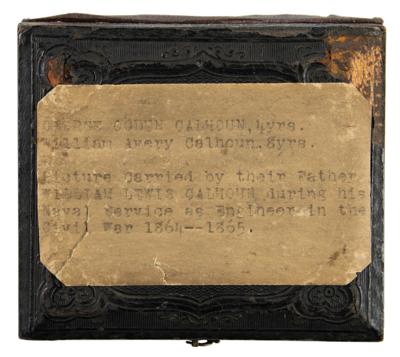 GEORGE OGDEN CALHOUN, 4yrs.
William Avery Calhoun. 8yrs.
Picture Carried by their Father
WILLIAM LEWIS CALHOUN during his
Naval Service as Engineer in the
Civil War 1864--1865.